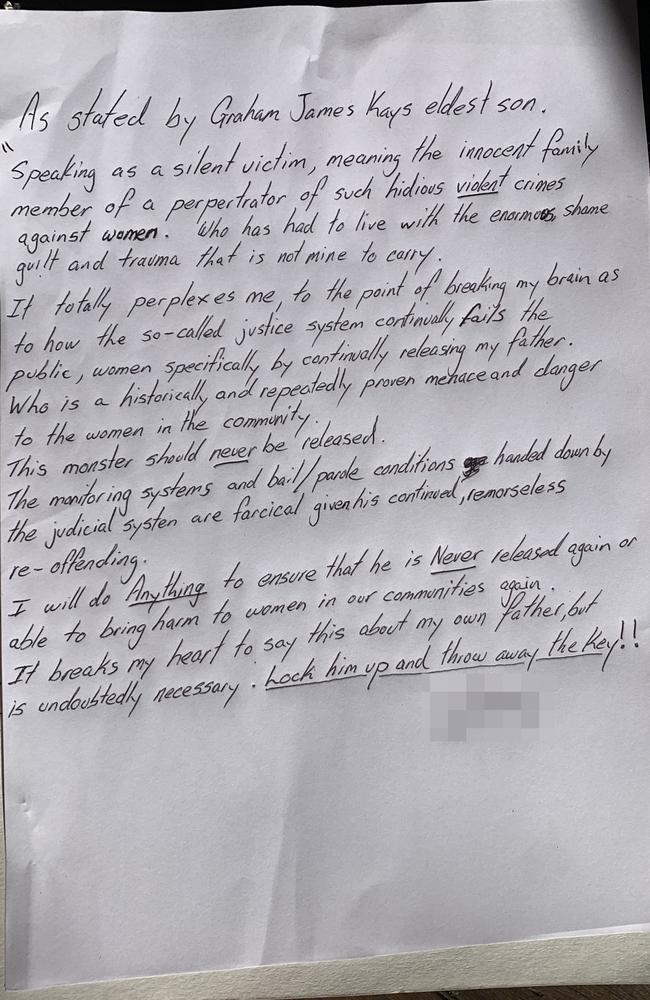 As stated by Graham James Kays eldest son.
"Speaking as a silent victim, meaning the innocent family
member of a perpertrator of such hidious violent crimes
against women. Who has had to live with the enormous shame
guilt and trauma that is not mine to carry.
It totally perplexes me, to the point of breaking my brain as
to how the so-called justice system continually fails the
public, women specifically by continually releasing my father.
Who is a historically and repeatedly proven menace and danger
to the women in the community.
This monster should never be released.
The monitoring systems and bail/parole conditions handed down by
the judicial systen are farcical given his continued, remorseless
re-offending.
I will do Anything to ensure that he is Never released again or
able to bring harm to women in our communities again.
It breaks my heart to say this about my own father, but
is undoubtedly necessary. Lock him up and throw away the key!!